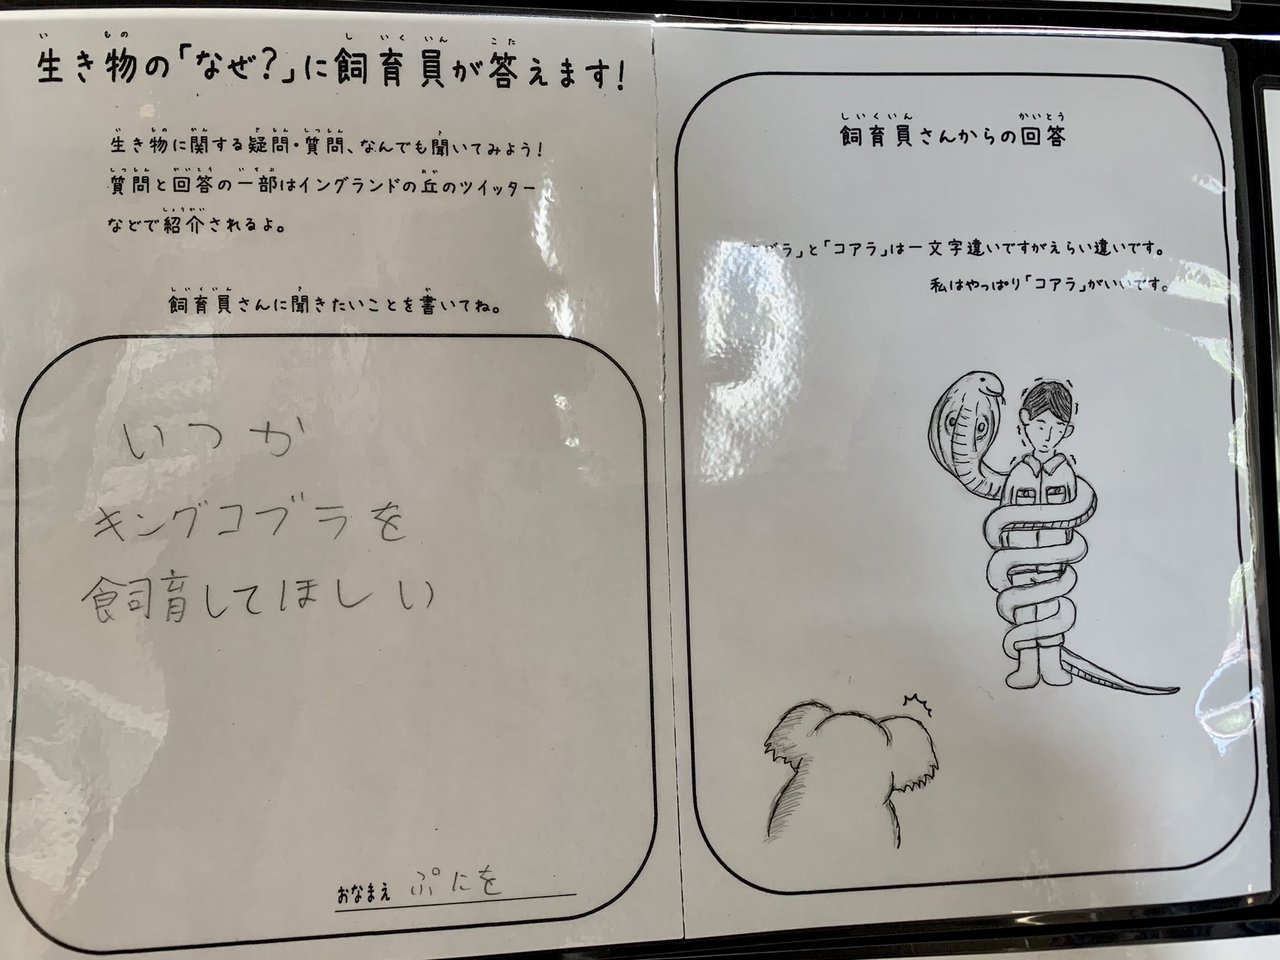 生き物の「なぜ?」に飼育員が答えます!
生き物に関する疑問・質問、なんでも聞いてみよう!
質問と回答の一部はイングランドの丘のツイッター
などで紹介されるよ。
飼育員さんに聞きたいことを書いてね。
いつか
キングコブラを
飼育してほしい
おなまえ ぷにを
飼育員さんからの回答
ブラ」と「コアラ」は一文字違いですがえらい違いです。
私はやっぱり「コアラ」がいいです。